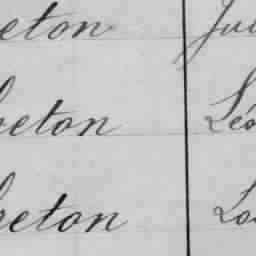 eton Jul
beton Léo
beton Lou